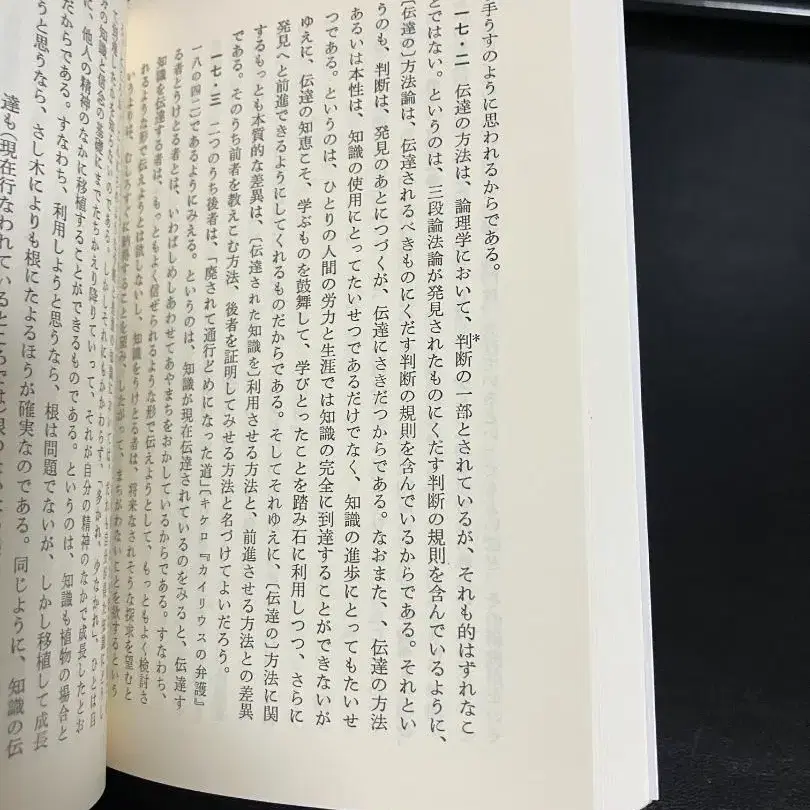 手うすのように思われるからである。
一七・二　伝達の方法は、論理学において、判断*の一部とされているが、それも的はずれなこ
とではない。というのは、三段論法論が発見されたものにくだす判断の規則を含んでいるように、
〔伝達の〕方法論は、伝達されるべきものにくだす判断の規則を含んでいるからである。それとい
うのも、判断は、発見のあとにつづくが、伝達にさきだつからである。なおまた、、伝達の方法
あるいは本性は、知識の使用にとってたいせつであるだけでなく、知識の進歩にとってもたいせ
つである。というのは、ひとりの人間の労力と生涯では知識の完全に到達することができないが
ゆえに、伝達の知恵こそ、学ぶものを鼓舞して、学びとったことを踏み石に利用しつつ、さらに
発見へと前進できるようにしてくれるものだからである。そしてそれゆえに、〔伝達の〕方法に関
するもっとも本質的な差異は、〔伝達された知識を〕利用させる方法と、前進させる方法との差異
である。そのうち前者を教えこむ方法、後者を証明してみせる方法と名づけてよいだろう。
一七・三　二つのうち後者は、「廃されて通行どめになった道」〔キケロ『カイリウスの弁護』
一八の四二〕であるようにみえる。というのは、知識が現在伝達されているのをみると、伝達す
る者とうけとる者とは、いわばしめしあわせてあやまちをおかしているからである。すなわち、
知識を伝達する者は、もっともよく信ぜられるような形で伝えようとして、もっともよく検討さ
れるような形で伝えようとは試しないし、知識をうけとる者は、将来なされそうな探求を望むと
いうよりは、むしろすぐに納得することを望み、したがって、まちがわないことを欲するという
分の知識と信念の基礎にまでたちかえり降りていって、それが自分の精神のなかで成長したとお
に、他人の精神のなかに移植することができるものである。というのは、知識も植物の場合と
だからである。すなわち、利用しようと思うなら、根は問題でないが、しかし移植して成長
うと思うなら、さし木によりも根にたよるほうが確実なのである。同じように、知識の伝
達も（現在行なわれているところでは）